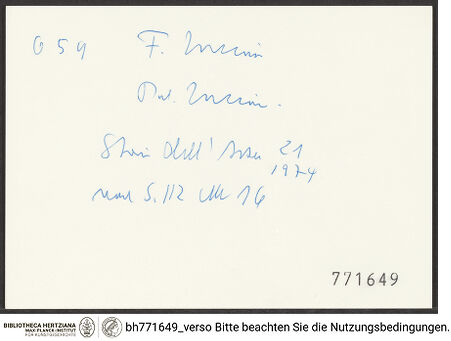 G 59 F. Zuccari
Pal. Zuccari.
Storia dell'Arte 21
1974
nach S. 112 Abb 16
771649
BIBLIOTHECA HERTZIANA
MAX-PLANCK-INSTITUT
FÜR KUNSTGESCHICHTE
bh771649_verso Bitte beachten Sie die Nutzungsbedingungen.